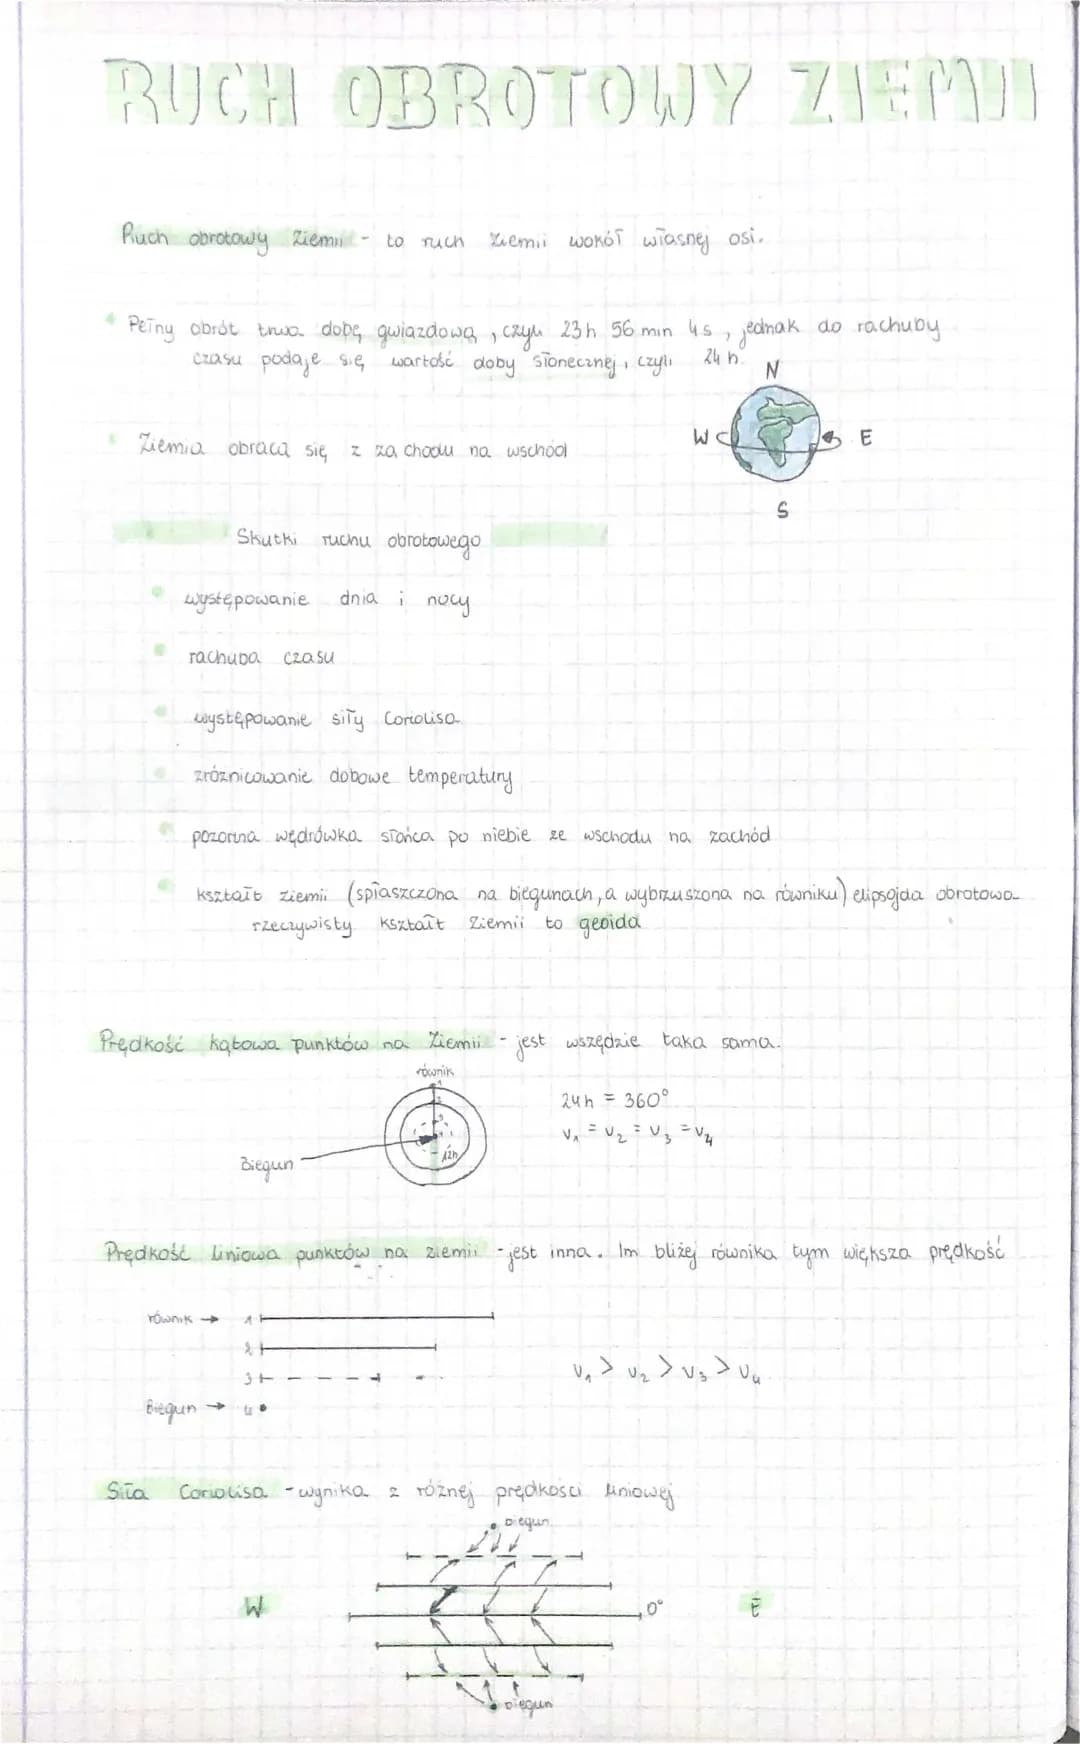 RUCH OBROTOWY ZIEMII
Ruch obrotowy Ziemii - to ruch Ziemii wokół własnej osi.
Pełny obrót trwa dobę gwiazdową, czyli 23h 56 min 4s, jednak do rachuby
czasu podaje się wartość doby słonecznej, czyli 24 h.
N
Ziemia obraca się z zachodu na wschód
W E
S
Skutki ruchu obrotowego
występowanie dnia i nocy
rachuba czasu
występowanie siły Coriolisa
zróżnicowanie dobowe temperatury
pozorna wędrówka słońca po niebie ze wschodu na zachód
kształt ziemii (spłaszczona na biegunach, a wybrzuszona na równiku) elipsojda obrotowa
rzeczywisty kształt Ziemii to geoida
Prędkość kątowa punktów na Ziemii - jest wszędzie taka sama.
równik
24h = 360°
V₁ = V₂ = V₃ = V₄
12h
Biegun
Prędkość liniowa punktów na ziemii - jest inna. Im bliżej równika tym większa prędkość
równik → 1
2
3
V₁ > V₂ > V₃ > V₄
Biegun → 4
Siła Coriolisa - wynika z różnej prędkości liniowej
biegun
W 0° E
biegun